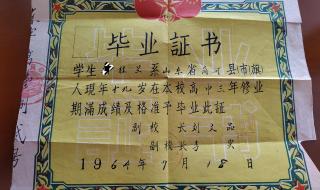 毕业証书
学生 桂兰系山东省 县(市)(旗)
人現年十九岁在本校高中三年修业
期滿成绩及格准予毕业此証
副校长刘又品
副校长李
1964年7月18日